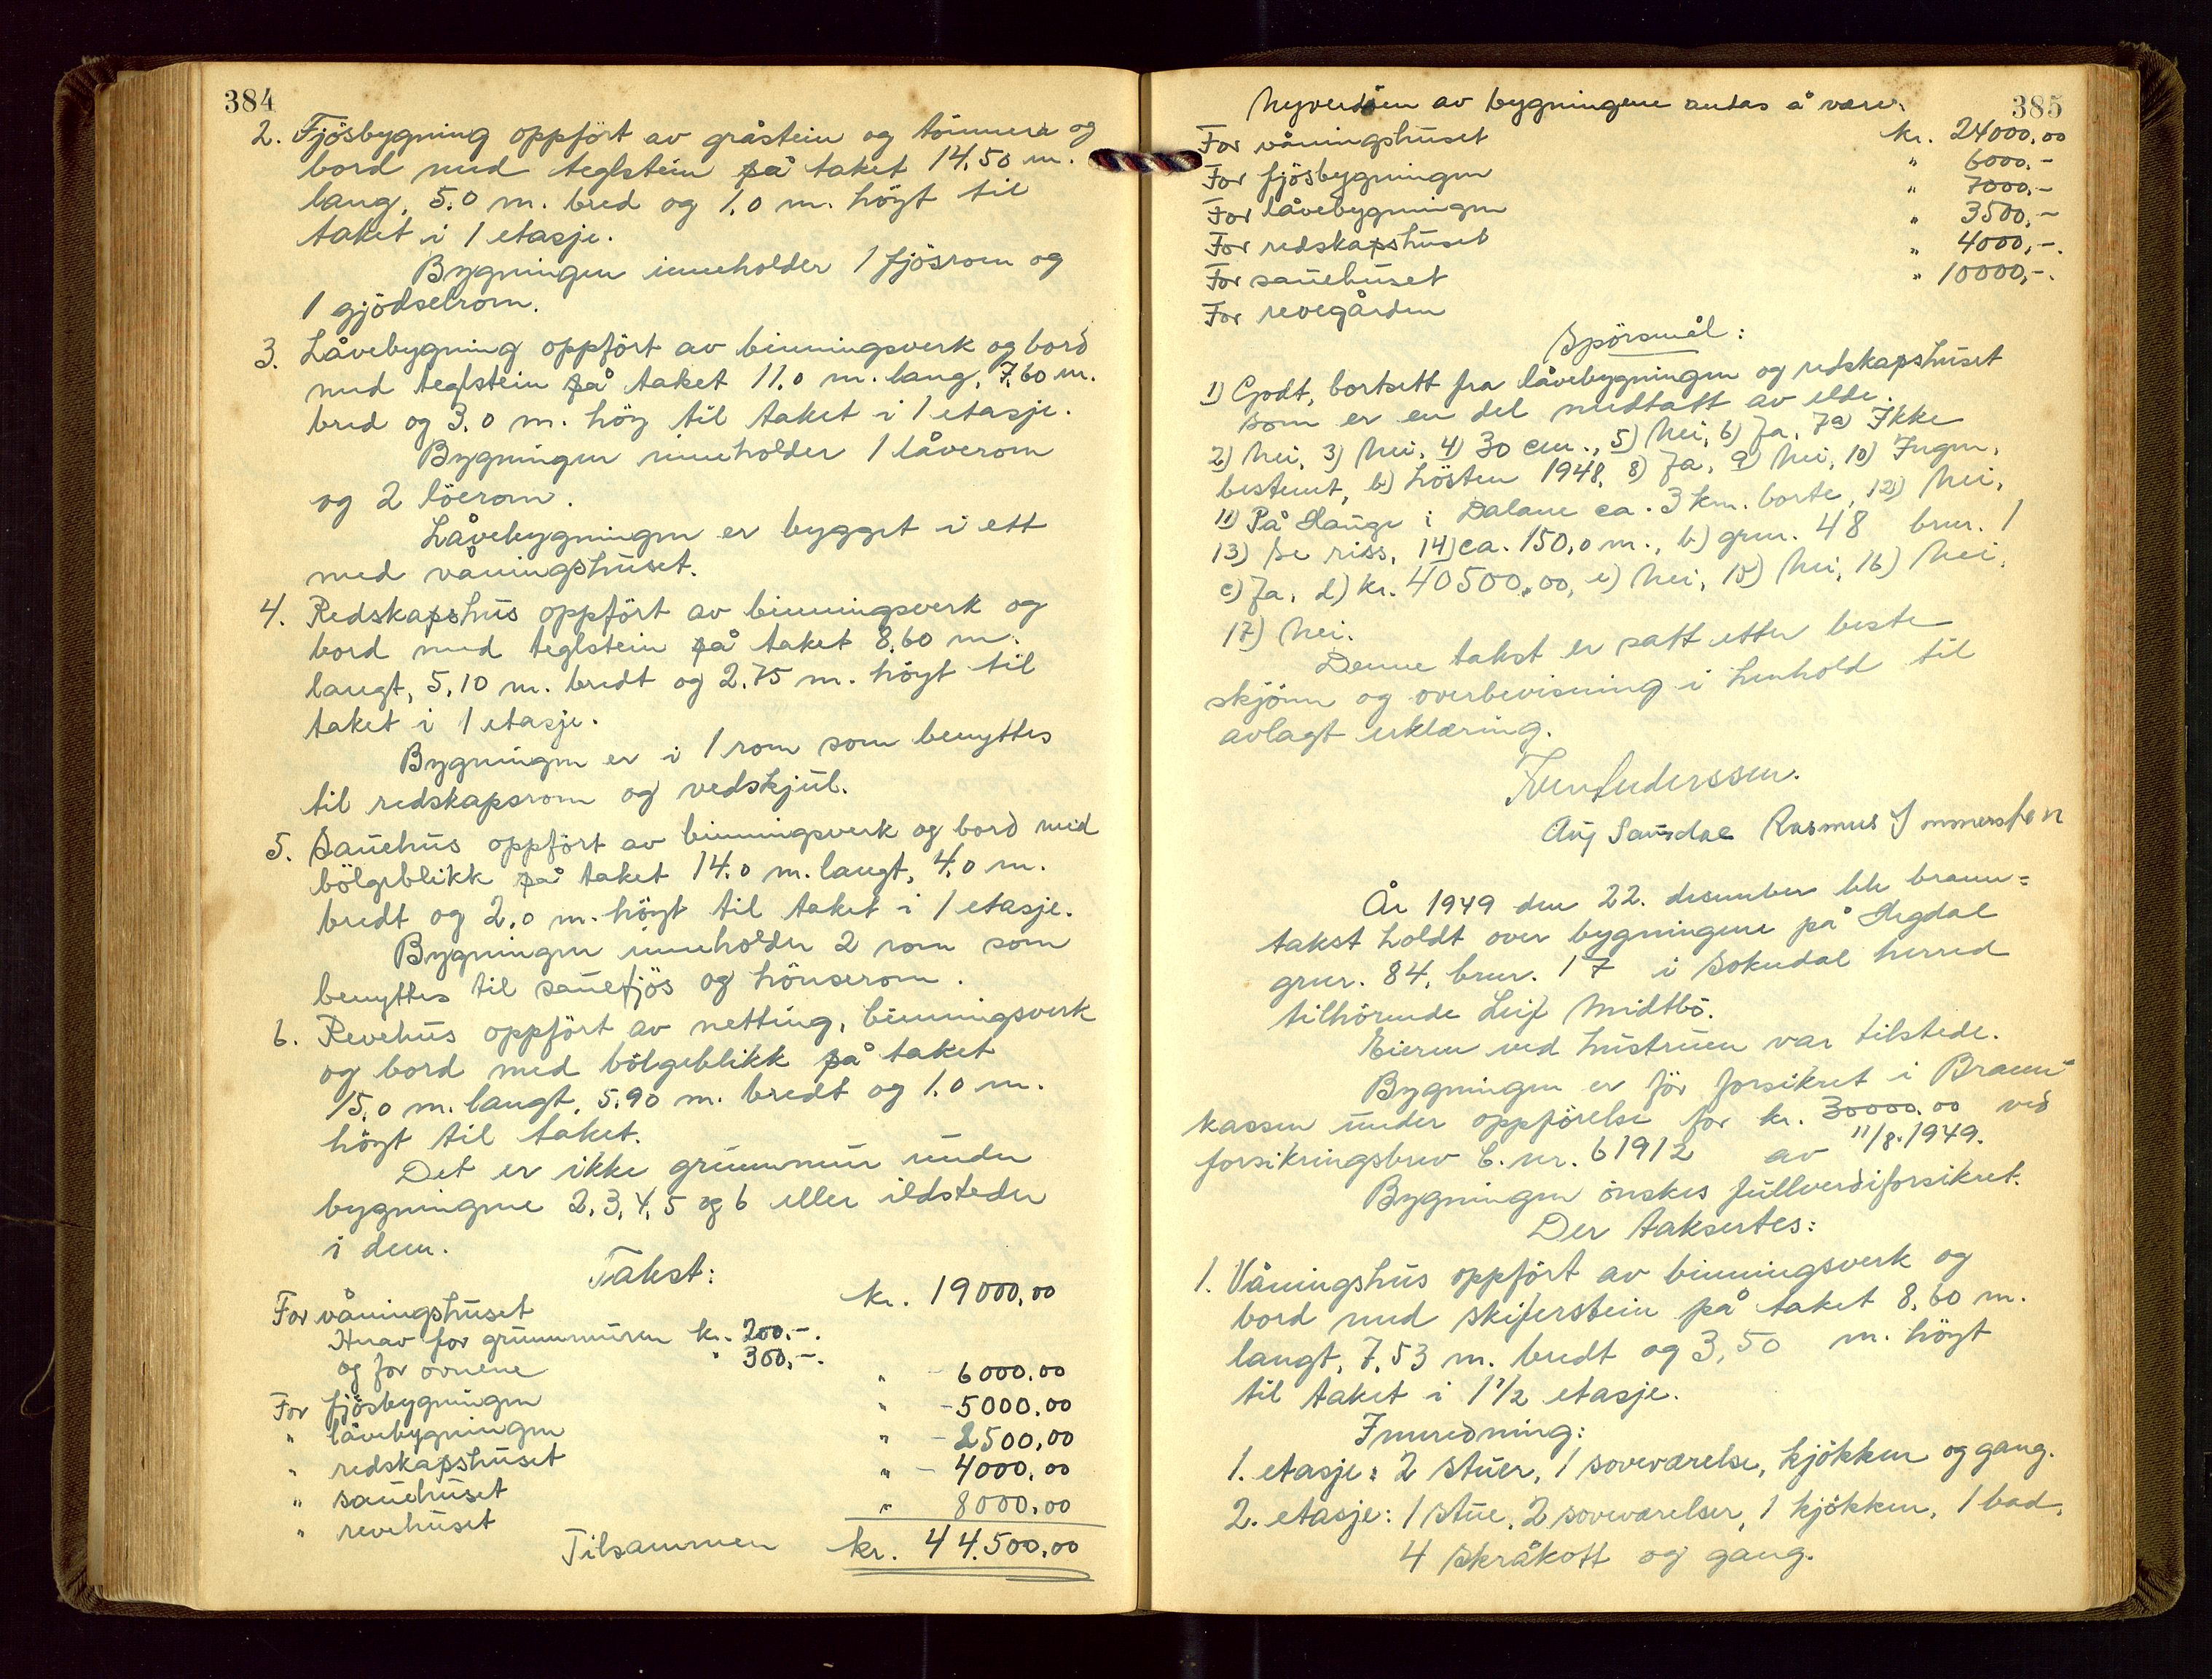 384
2. Fjösbygning oppfört av gråstein og tömmer og
bord med teglstein på taket 14,50 m.
lang, 5.0 m. bred og 1.0 m. höyt til
taket i 1 etasje.
Bygningen inneholder 1 fjösrom og
1 gjödselrom.
3. Låvebygning oppfört av binningsverk og bord
med teglstein på taket 11.0 m. lang, 7,60 m.
bred og 3.0 m. höy til taket i 1 etasje.
Bygningen inneholder 1 låverom
og 2 löerom.
Låvebygningen er bygget i ett
med våningshuset.
4. Redskapshus oppfört av binningsverk og
bord med teglstein på taket 8,60 m.
langt, 5,10 m. bredt og 2,75 m. höyt til
taket i 1 etasje.
Bygningen er i 1 rom som benyttes
til redskapsrom og vedskjul.
5. Sauehus oppfört av binningsverk og bord med
bölgeblikk på taket 14.0 m. langt, 4,0 m.
bredt og 2.0 m. höyt til taket i 1 etasje.
Bygningen inneholder 2 rom som
benyttes til sauefjös og hönserom.
6. Revehus oppfört av netting, binningsverk
og bord med bölgeblikk på taket
15.0 m. langt, 5.90 m. bredt og 1.0 m.
höyt til taket.
Det er ikke grunnmur under
bygningene 2, 3, 4, 5 og 6 eller ildsteder
i dem.
Takst:
For våningshuset kr. 19000,00
Herav for grunnmuren kr. 200.-.
og for ovnene " 300,-.
For fjösbygningen " - 6000.00
" låvebygningen " - 5000.00
" redskapshuset " - 2500,00
" sauehuset " - 4000,00
" revehuset " 8000,00
Tilsammen kr. 44.500,00
385
Nyverdien av bygningene antas å være:
For våningshuset kr. 24000,00
For fjösbygningen " 6000,-
For låvebygningen " 7000,-
For redskapshuset " 3500,-
For sauehuset " 4000,-.
For revegården " 10000,-.
Spörsmål:
1) Godt, bortsett fra låvebygningen og redskapshuset
som er en del medtatt av elde.
2) Nei, 3) Nei, 4) 30 cm., 5) Nei, 6) Ja, 7a) Ikke
bestemt, b) Hösten 1948, 8) Ja, 9) Nei, 10) Ingen,
11) På Hauge i Dalane ca. 3 km. borte, 12) Nei,
13) Se riss, 14) ca. 150,0 m., b) gnr. 48 bnr. 1
c) Ja, d) kr. 40500,00, e) Nei, 15) Nei, 16) Nei,
17) Nei.
Denne takst er satt etter beste
skjönn og overbevisning i henhold til
avlagt erklæring.
Aug Rasmus
År 1949 den 22. desember ble brann=
takst holdt over bygningene på Hegdal
gnr. 84, bnr. 17 i Sokndal herred
tilhörende Leif Midtbö.
Eieren ved hustruen var tilstede.
Bygningen er för forsikret i Brann-
kassen under oppförelse for kr. 30000.00 ved
forsikringsbrev C. nr. 61912 av 11/8.1949.
Bygningen önskes fullverdiforsikret.
Der taksertes:
1. Våningshus oppfört av binningsverk og
bord med skiferstein på taket 8,60 m.
langt, 7,53 m. bredt og 3,50 m. höyt
til taket i 1 1/2 etasje.
Innredning:
1. etasje: 2 stuer, 1 soveværelse, kjökken og gang.
2. etasje: 1 stue, 2 soveværelser, 1 kjökken, 1 bad,
4 skråkott og gang.